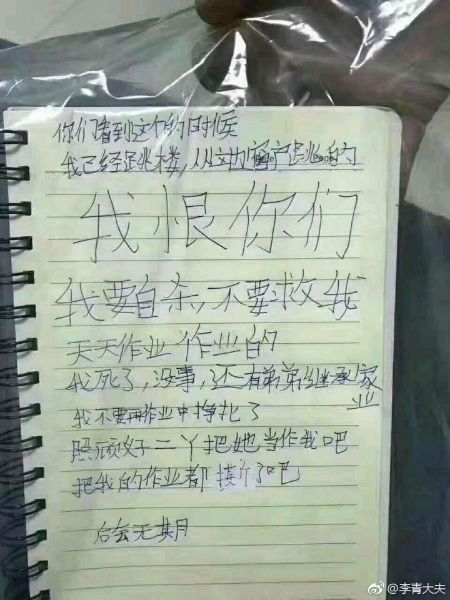 你们看到这个的时候
我已经跳楼,从这边窗户跳的
我恨你们
我要自杀,不要救我
天天作业作业的
我死了,没事,还有弟弟继承家
业
我不要再作业中挣扎了
照顾好二丫把她当作我吧
把我的作业都撕了吧
后会无期
@李青大夫